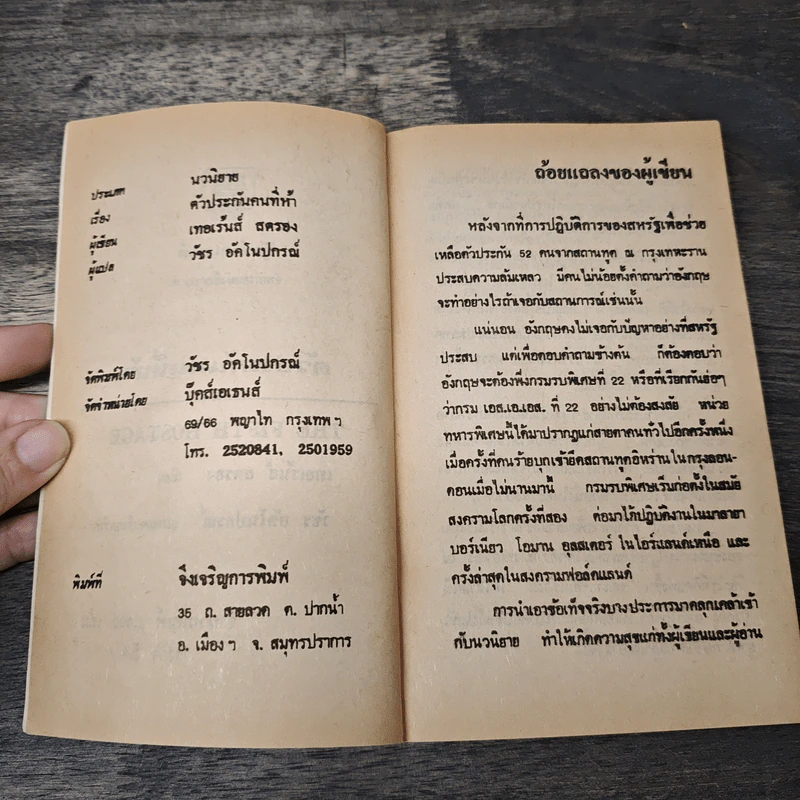 ประเภท นวนิยาย
เรื่อง ตัวประกันคนที่ห้า
ผู้เขียน เทอเร้นส์ สตรอง
ผู้แปล วัชร อัคโนปกรณ์
จัดพิมพ์โดย วัชร อัคโนปกรณ์
จัดจำหน่ายโดย บุ๊คส์เอเธนส์
69/66 พญาไท กรุงเทพฯ
โทร. 2520841, 2501959
พิมพ์ที่ จึงเจริญการพิมพ์
35 ถ. สายลวด ต. ปากน้ำ
อ. เมืองฯ จ. สมุทรปราการ
ถ้อยแถลงของผู้เขียน
หลังจากที่การปฏิบัติการของสหรัฐเพื่อช่วย
เหลือตัวประกัน 52 คนจากสถานทูต ณ กรุงเทหะราน
ประสบความล้มเหลว มีคนไม่น้อยตั้งคำถามว่าอังกฤษ
จะทำอย่างไรถ้าเจอกับสถานการณ์เช่นนั้น
แน่นอน อังกฤษคงไม่เจอกับปัญหาอย่างที่สหรัฐ
ประสบ แต่เพื่อตอบคำถามข้างต้น ก็ต้องตอบว่า
อังกฤษจะต้องพึ่งกรมรบพิเศษที่ 22 หรือที่เรียกกันย่อๆ
ว่ากรม เอส.เอ.เอส. ที่ 22 อย่างไม่ต้องสงสัย หน่วย
ทหารพิเศษนี้ได้มาปรากฏแก่สายตาคนทั่วไปอีกครั้งหนึ่ง
เมื่อครั้งที่คนร้ายบุกเข้ายึดสถานทูตอิหร่านในกรุงลอน-
ดอนเมื่อไม่นานมานี้ กรมรบพิเศษเริ่มก่อตั้งในสมัย
สงครามโลกครั้งที่สอง ต่อมาได้ปฏิบัติงานในมาลายา
บอร์เนียว โอมาน อุลสเตอร์ ในไอร์แลนด์เหนือ และ
ครั้งล่าสุดในสงครามฟอล์คแลนด์
การนำเอาข้อเท็จจริงบางประการมาคลุกเคล้าเข้า
กับนวนิยาย ทำให้เกิดความสุขแก่ทั้งผู้เขียนและผู้อ่าน